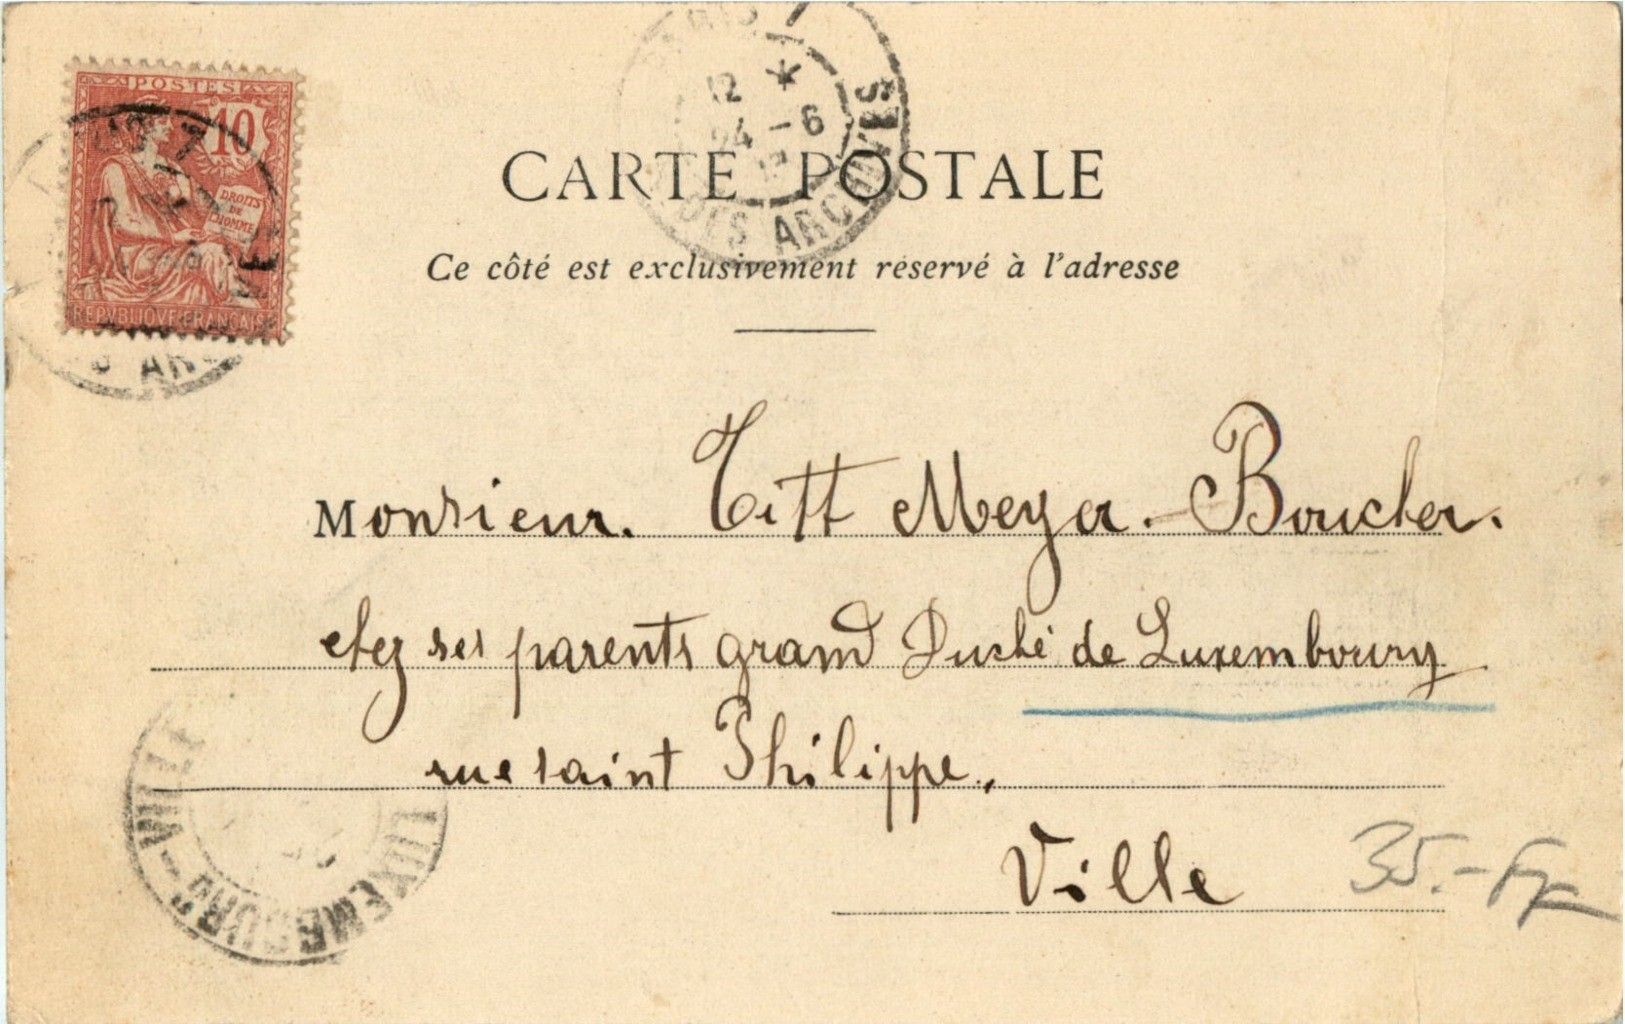 POSTES
10
DROITS
DE
L'HOMME
REPVBLIQVE FRANÇAISE
12 *
24 -6
DES ARCHIVES
CARTE POSTALE
Ce côté est exclusivement réservé à l'adresse
Monsieur. Titt Meyer-Boucher.
chez ses parents grand Duché de Luxembourg
rue saint Philippe.
Ville
35.-Fr
LUXEMBOURG-VILLE